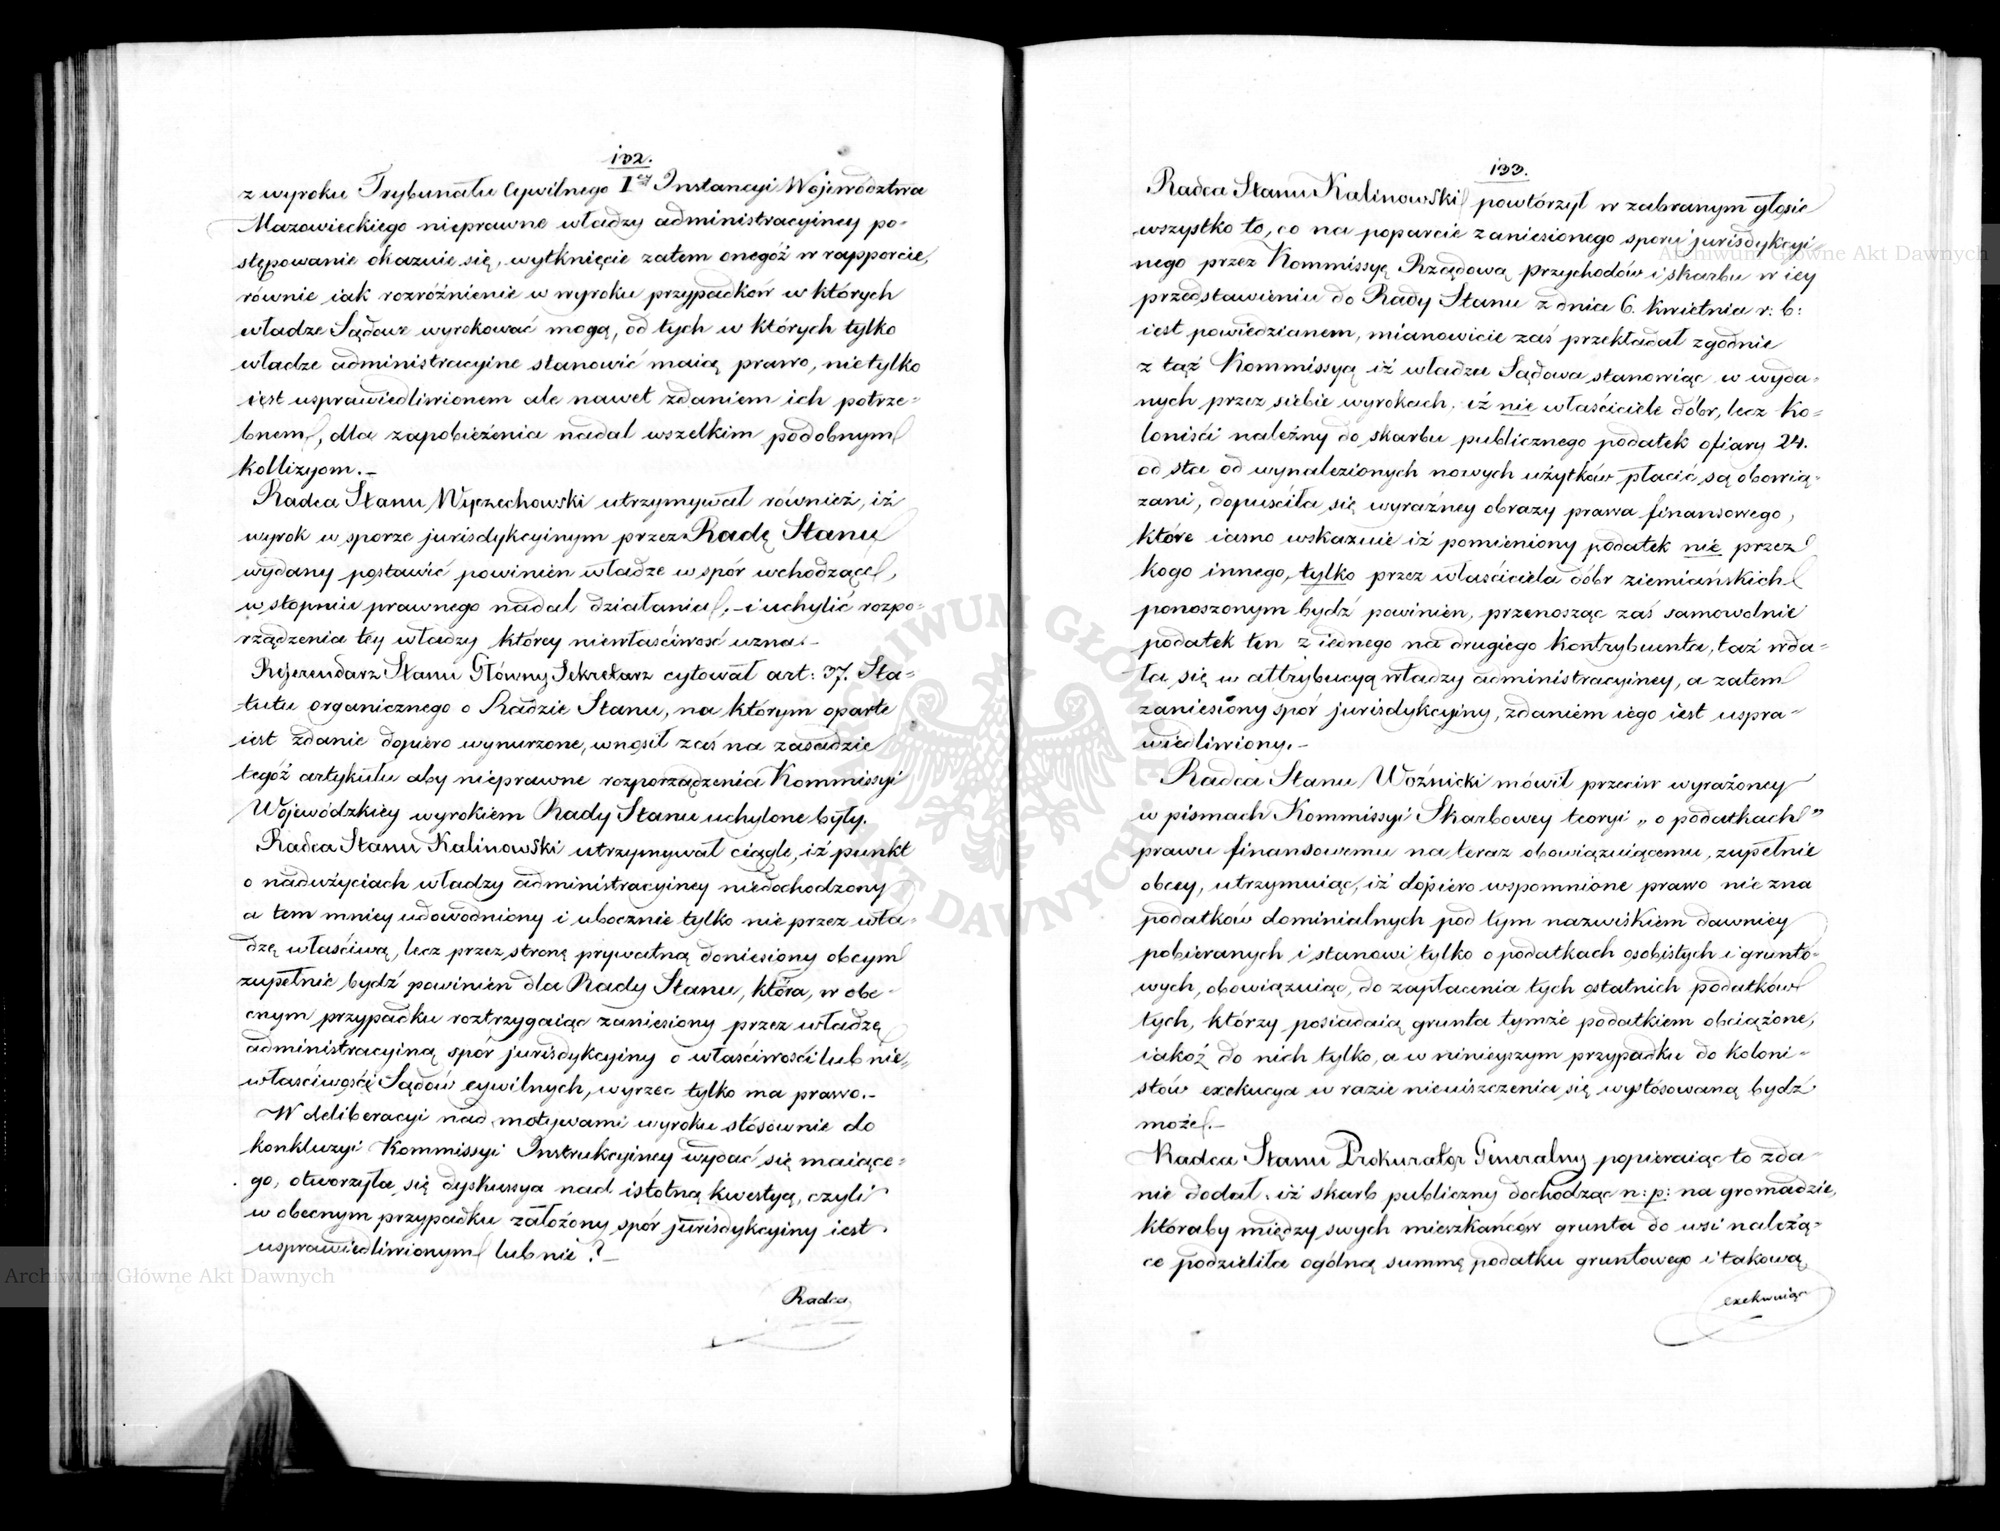 132.
z wyroku Trybunału Cywilnego Iey Instancyi Województwa
Mazowieckiego nieprawne władzy administracyiney po-
stępowanie okazuie się, wytknięcie zatem onegóż w rapporcie,
równie iak rozróżnienie w wyroku przypadków w których
władze Sądowe wyrokować mogą, od tych w których tylko
władze administracyine stanowić maią prawo, nietylko
iest usprawiedliwionem ale nawet zdaniem ich potrze-
bnem, dla zapobieżenia nadal wszelkim podobnym
kollizyom.-
Radca Stanu Wyczechowski utrzymywał również, iż
wyrok w sporze jurisdykcyinym przez Radę Stanu
wydany postawić powinien władze w spór wchodzące,
w stopniu prawnego nadal działania,- i uchylić rozpo-
rządzenia tey władzy którey niewłaściwość uzna.-
Referendarz Stanu Główny Sekretarz cytował art: 37. Sta-
tutu organicznego o Radzie Stanu, na którym oparte
iest zdanie dopiero wynurzone, wnosił zaś na zasadzie
tegóż artykułu aby nieprawne rozporządzenia Kommissyi
Wojewódzkiey wyrokiem Rady Stanu uchylone były.
Radca Stanu Kalinowski utrzymywał ciągle, iż punkt
o nadużyciach władzy administracyiney niedochodzony
a tem mniey udowodniony i ubocznie tylko nie przez wła-
dzę właściwą, lecz przez stronę prywatną doniesiony obcym
zupełnie bydź powinien dla Rady Stanu, która, w obe-
cnym przypadku roztrzygaiąc zaniesiony przez władzę
administracyiną spór jurisdykcyiny o właściwości lub nie-
właściwości Sądów cywilnych, wyrzec tylko ma prawo.-
W deliberacyi nad motywami wyroku stósownie do
konkluzyi Kommissyi Instrukcyiney wydać się maiące-
go, otworzyła się dyskussya nad istotną kwestyą, czyli
w obecnym przypadku założony spór jurisdykcyiny iest
usprawiedliwionym lub nie?-
Radca
133.
Radca Stanu Kalinowski powtórzył w zabranym głosie
wszystko to, co na poparcie zaniesionego sporu jurisdykcyi-
nego przez Kommissyą Rządową przychodów i skarbu w iey
przedstawieniu do Rady Stanu z dnia 6. kwietnia r: b:
iest powiedzianem, mianowicie zaś przekładał zgodnie
z taż Kommissyą iż władza Sądowa stanowiąc w wyda-
nych przez siebie wyrokach, iż nie właściciele dóbr, lecz ko-
loniści należny do skarbu publicznego podatek ofiary 24.
od sta od wynalezionych nowych użytków płacić są obowią-
zani, dopuściła się wyraźney obrazy prawa finansowego,
które iasno wskazuie iż pomieniony podatek nie przez
kogo innego, tylko przez właściciela dóbr ziemiańskich
ponoszonym bydź powinien, przenosząc zaś samowolnie
podatek ten z iednego na drugiego kontrybuenta, taż wda-
ła się w attrybucyą władzy administracyiney, a zatem
zaniesiony spór jurisdykcyiny, zdaniem iego iest uspra-
wiedliwiony.-
Radca Stanu Woźnicki mówił przeciw wyrażoney
w pismach Kommissyi Skarbowey teoryi „o podatkach”
prawu finansowemu na teraz obowiązuiącemu, zupełnie
obcey, utrzymuiąc, iż dopiero wspomnione prawo nie zna
podatków dominialnych pod tym nazwiskiem dawniey
pobieranych i stanowi tylko o podatkach osobistych i grunto-
wych, obowiązuiąc, do zapłacenia tych ostatnich podatków
tych, którzy posiadaią grunta tymże podatkiem obciążone,
iakoż do nich tylko, a w ninieyszym przypadku do koloni-
stów exekucya w razie nieuiszczenia się wystósowaną bydź
może.-
Radca Stanu Prokurator Generalny popieraiąc to zda-
nie dodał, iż skarb publiczny dochodząc n: p: na gromadzie,
któraby między swych mieszkańców grunta do wsi należą-
ce podzieliła ogólną summę podatku gruntowego i takową
exekwuiąc
ARCHIWUM GŁÓWNE AKT DAWNYCH
Archiwum Główne Akt Dawnych
Archiwum Główne Akt Dawnych